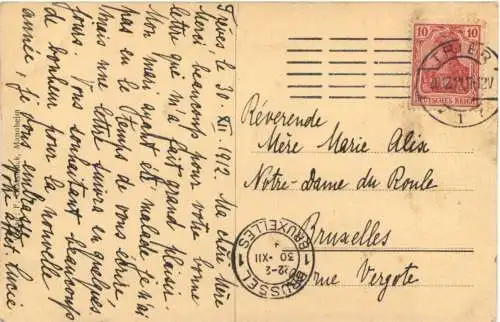 Trèves le 30. XII. 1912. Ma chère Mère
Merci beaucoup pour votre bonne
lettre qui m'a fait grand plaisir.
Mon mari ayant été malade je n'ai
pas eu le temps de vous écrire
mais une lettre suivra en quelques
jours. Vous souhaitant beaucoup
de bonheur pour la nouvelle
année, je vous embrasse
Votre affect. Lucie
10 10
DEUTSCHES REICH
TRIER
1
Révérende
Mère Marie Alix
Notre-Dame du Roule
Bruxelles
rue Vergote
1 BRUXELLES 1
12-2
30-XII
BRUSSEL